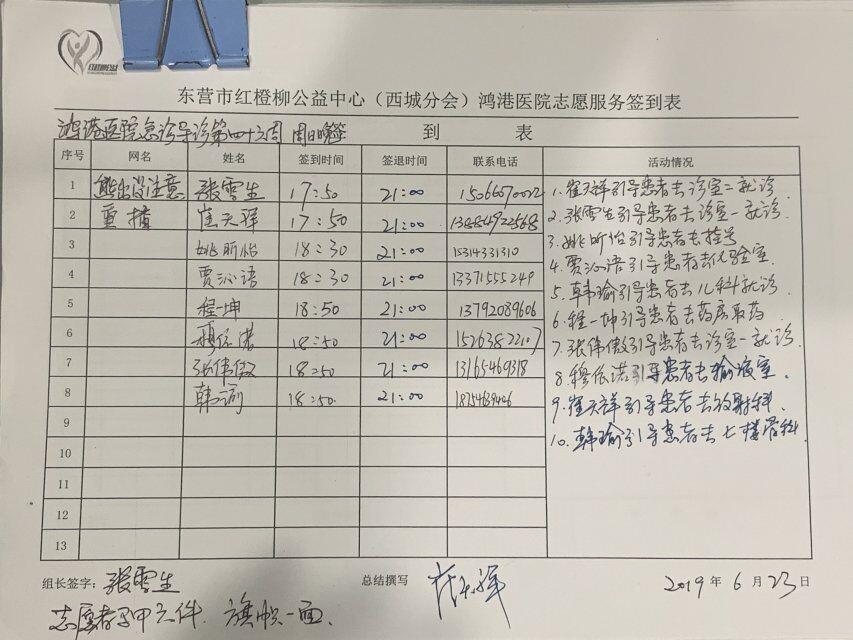 东营市红橙柳公益中心（西城分会）鸿港医院志愿服务签到表
鸿港医院急诊导诊第四十六周 周日晚签 到 表
序号 网名 姓名 签到时间 签退时间 联系电话 活动情况
1 熊出没注意 张雪生 17:50 21:00
2 重楼 崔天祥 17:50 21:00
3 姚昕怡 18:30 21:00 15314331310
4 贾沁语 18:30 21:00 13371555249
5 程一坤 18:50 21:00 13792089606
6 穆依诺 18:50 21:00 15263822107
7 张伟傲 18:50 21:00 13165469318
8 韩瑜 18:50. 21:00
9
10
11
12
13
1. 崔天祥引导患者去诊室二就诊.
2. 张雪生引导患者去诊室一就诊.
3. 姚昕怡引导患者去挂号
4. 贾沁语引导患者去化验室.
5. 韩瑜引导患者去儿科就诊.
6. 程一坤引导患者去药房取药
7. 张伟傲引导患者去诊室一就诊.
8. 穆依诺引导患者去输液室.
9. 崔天祥引导患者去放射科.
10. 韩瑜引导患者去七楼骨科.
组长签字：张雪生 总结撰写 2019 年 6 月 23 日
志愿者马甲六件. 旗帜一面.